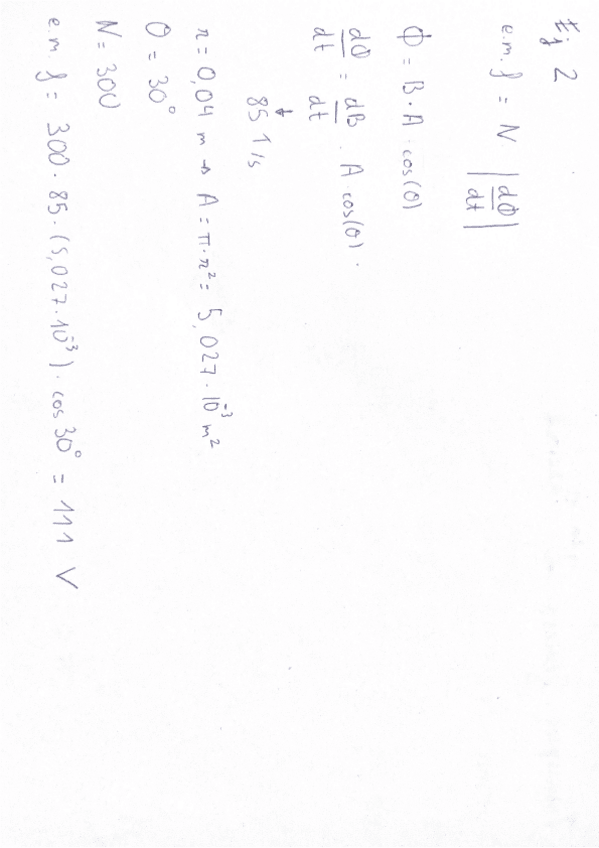 Ej 2
e.m.f = N |dΦ/dt|
Φ = B · A · cos(θ)
dΦ/dt = dB/dt · A · cos(θ) ·
↓
85 T/s
r = 0,04 m → A = π · r² = 5,027 · 10⁻³ m²
θ = 30°
N = 300
e.m.f = 300 · 85 · (5,027 · 10⁻³) · cos 30° = 111 V